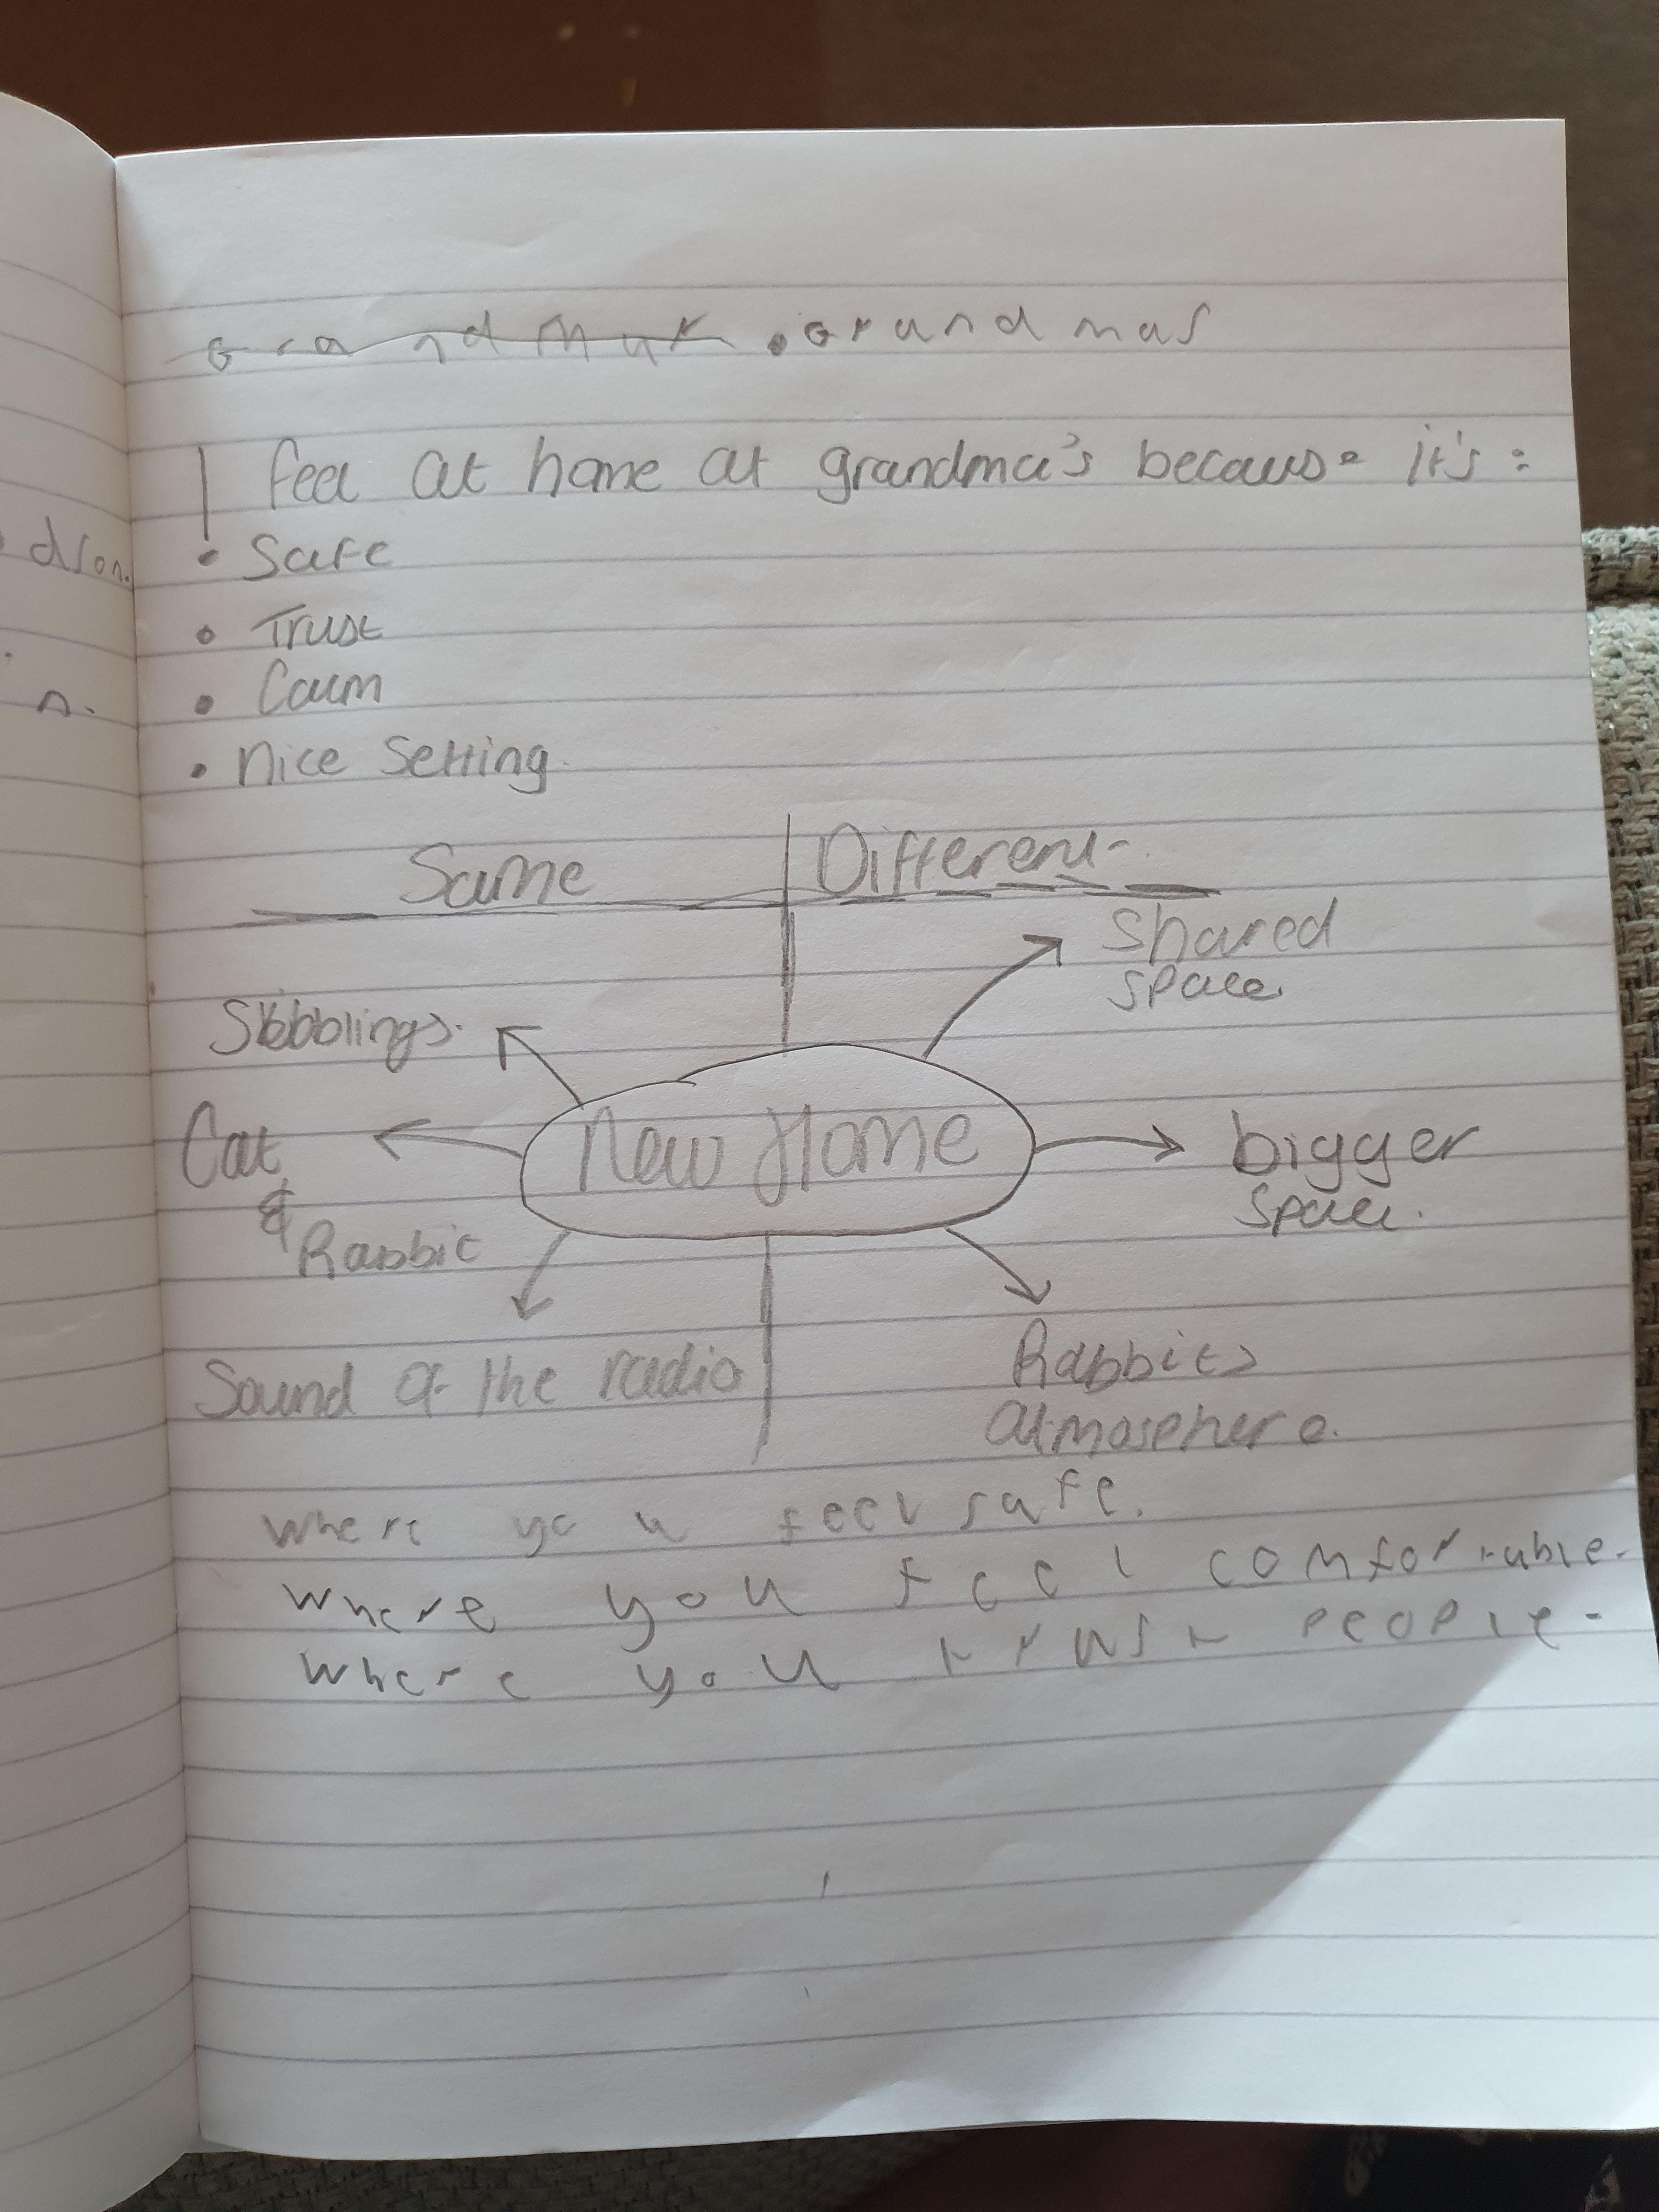 Grandmar • Grandmas
I feel at home at grandma's because it's:
• Safe
• Trust
• Calm
• nice Setting.
Same Different
Shared
space.
Sibblings.
New Home
Cat
&
Rabbit
bigger
space.
Sound of the radio
Rabbits
atmosphere.
Where you feel safe.
Where you feel comfortable.
Where you trust people.